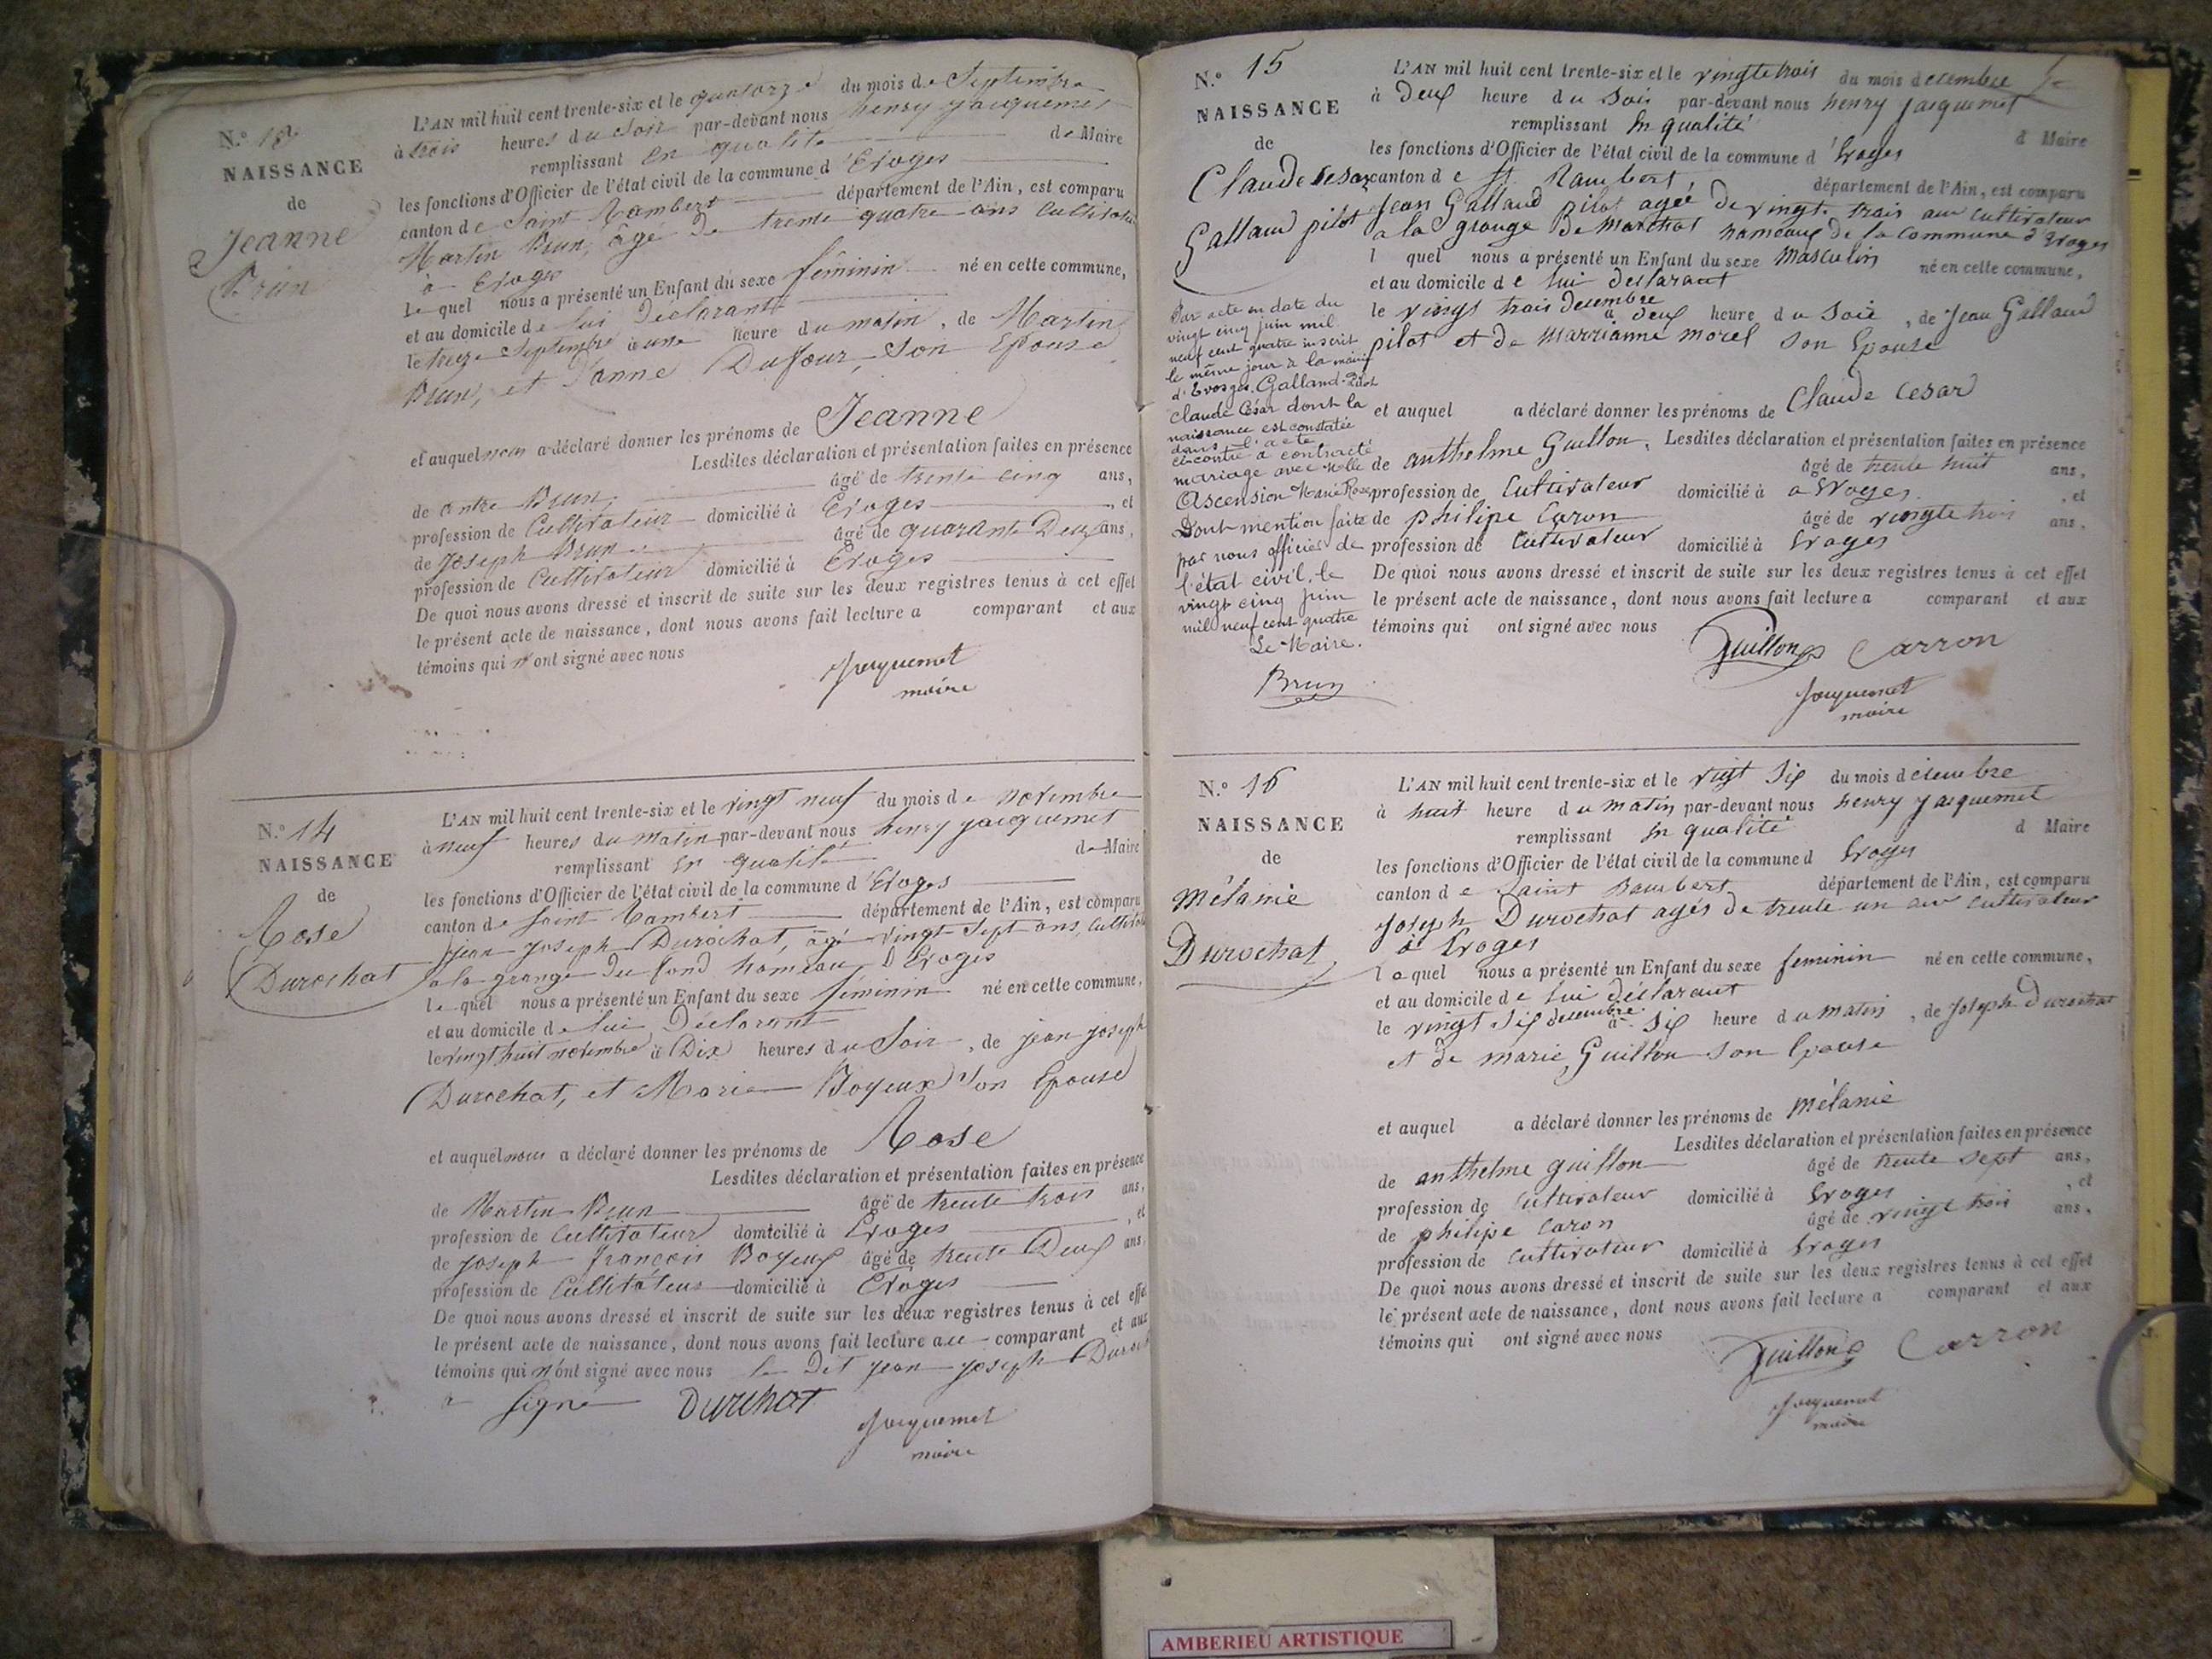 N.o 13
NAISSANCE
de
Jeanne
Brun
L'AN mil huit cent trente-six et le quatorze du mois de Septembre
à trois heures du Soir par-devant nous henry jacquemet
remplissant en qualité de Maire
les fonctions d'Officier de l'état civil de la commune d'Evoges
canton de Saint Rambert département de l'Ain, est comparu
Martin Brun, âgé de trente quatre ans Cultivateur
à Evoges
Le quel nous a présenté un Enfant du sexe féminin né en cette commune,
et au domicile de lui Déclarant
le treize Septembre à une heure du matin, de Martin
Brun, et d'anne Dufour, Son Epouse
et auquel nous a déclaré donner les prénoms de Jeanne
Lesdites déclaration et présentation faites en présence
de Brun, âgé de trente cinq ans,
profession de Cultivateur domicilié à Evoges, et
de Joseph Brun âgé de quarante Deux ans,
profession de Cultivateur domicilié à Evoges
De quoi nous avons dressé et inscrit de suite sur les deux registres tenus à cet effet
le présent acte de naissance, dont nous avons fait lecture a comparant et aux
témoins qui n'ont signé avec nous
Jacquemet
maire
N.o 14
NAISSANCE
de
Rose
Durochat
L'AN mil huit cent trente-six et le vingt neuf du mois de novembre
à neuf heures du matin par-devant nous henry jacquemet
remplissant en qualité de Maire
les fonctions d'Officier de l'état civil de la commune d'Evoges
canton de Saint Rambert département de l'Ain, est comparu
jean joseph Durochat, âgé vingt Sept ans, Cultivateur
a la grange du fond hameau D'Evoges
le quel nous a présenté un Enfant du sexe féminin né en cette commune,
et au domicile de lui Déclarant
le vingt huit novembre à Dix heures du Soir, de jean joseph
Durochat, et Marie Boyeux Son Epouse
et auquel nous a déclaré donner les prénoms de Rose
Lesdites déclaration et présentation faites en présence
de Martin Brun âgé de trente trois ans,
profession de Cultivateur domicilié à Evoges, et
de joseph françois Boyeux âgé de trente Deux ans,
profession de Cultivateur domicilié à Evoges
De quoi nous avons dressé et inscrit de suite sur les deux registres tenus à cet effet
le présent acte de naissance, dont nous avons fait lecture au comparant et aux
témoins qui n'ont signé avec nous le Dit jean joseph
a Signé Durchat
Jacquemet
maire
N.o 15
NAISSANCE
de
Claude Cesar
Galland pilot
L'AN mil huit cent trente-six et le vingt trois du mois decembre
à Deux heure du Soir par-devant nous henry jacquemet
remplissant en qualité d Maire
les fonctions d'Officier de l'état civil de la commune d'Evoges
canton de St Rambert département de l'Ain, est comparu
Jean Galland Pilot ageé de vingt trois ans cultivateur
a la grange De Marchat hameaux de la commune d'Evoges
l quel nous a présenté un Enfant du sexe Masculin né en cette commune,
et au domicile de lui desclarant
le vingt trois decembre à deux heure du Soir, de Jean Galland
pilot et de Marrianne morel son Epouse
et auquel a déclaré donner les prénoms de Claude Cesar
Lesdites déclaration et présentation faites en présence
de anthelme Guillon, âgé de trente huit ans,
profession de Cultivateur domicilié à a Evoges, et
de philipe Caron âgé de vingte trois ans,
profession de Cultivateur domicilié à Evoges
De quoi nous avons dressé et inscrit de suite sur les deux registres tenus à cet effet
le présent acte de naissance, dont nous avons fait lecture a comparant et aux
témoins qui ont signé avec nous
Guillon Carron
Jacquemet
maire
Par acte en date du
vingt cinq juin mil
neuf cent quatre inscrit
le même jour à la mairie
d'Evosges, Galland-Pilot
Claude César dont la
naissance est constatée
dans l'acte
ci contre a contracté
mariage avec Melle
Ascension Marie Rose
Dont mention faite
par nous officier de
l'état civil, le
vingt cinq juin
mil neuf cent quatre
Le Maire.
Brun
N.o 16
NAISSANCE
de
Mélanie
Durochat
L'AN mil huit cent trente-six et le vigt Six du mois décembre
à huit heure du matin par-devant nous henry jacquemet
remplissant en qualité d Maire
les fonctions d'Officier de l'état civil de la commune d Evoges
canton de Saint Rambert département de l'Ain, est comparu
joseph Durochat agés de trente un ans cultivateur
à Evoges
l e quel nous a présenté un Enfant du sexe feminin né en cette commune,
et au domicile de lui déclarant
le vingt Six decembre à Six heure du matin, de Joseph Durochat
et de marie Guillon Son Epouse
et auquel a déclaré donner les prénoms de Mélanie
Lesdites déclaration et présentation faites en présence
de anthelme guillon âgé de trente sept ans,
profession de Cultivateur domicilié à Evoges, et
de philipe Caron âgé de vingt trois ans,
profession de Cultivateur domicilié à Evoges
De quoi nous avons dressé et inscrit de suite sur les deux registres tenus à cet effet
le présent acte de naissance, dont nous avons fait lecture a comparant et aux
témoins qui ont signé avec nous
Guillon Carron
Jacquemet
maire
AMBERIEU ARTISTIQUE